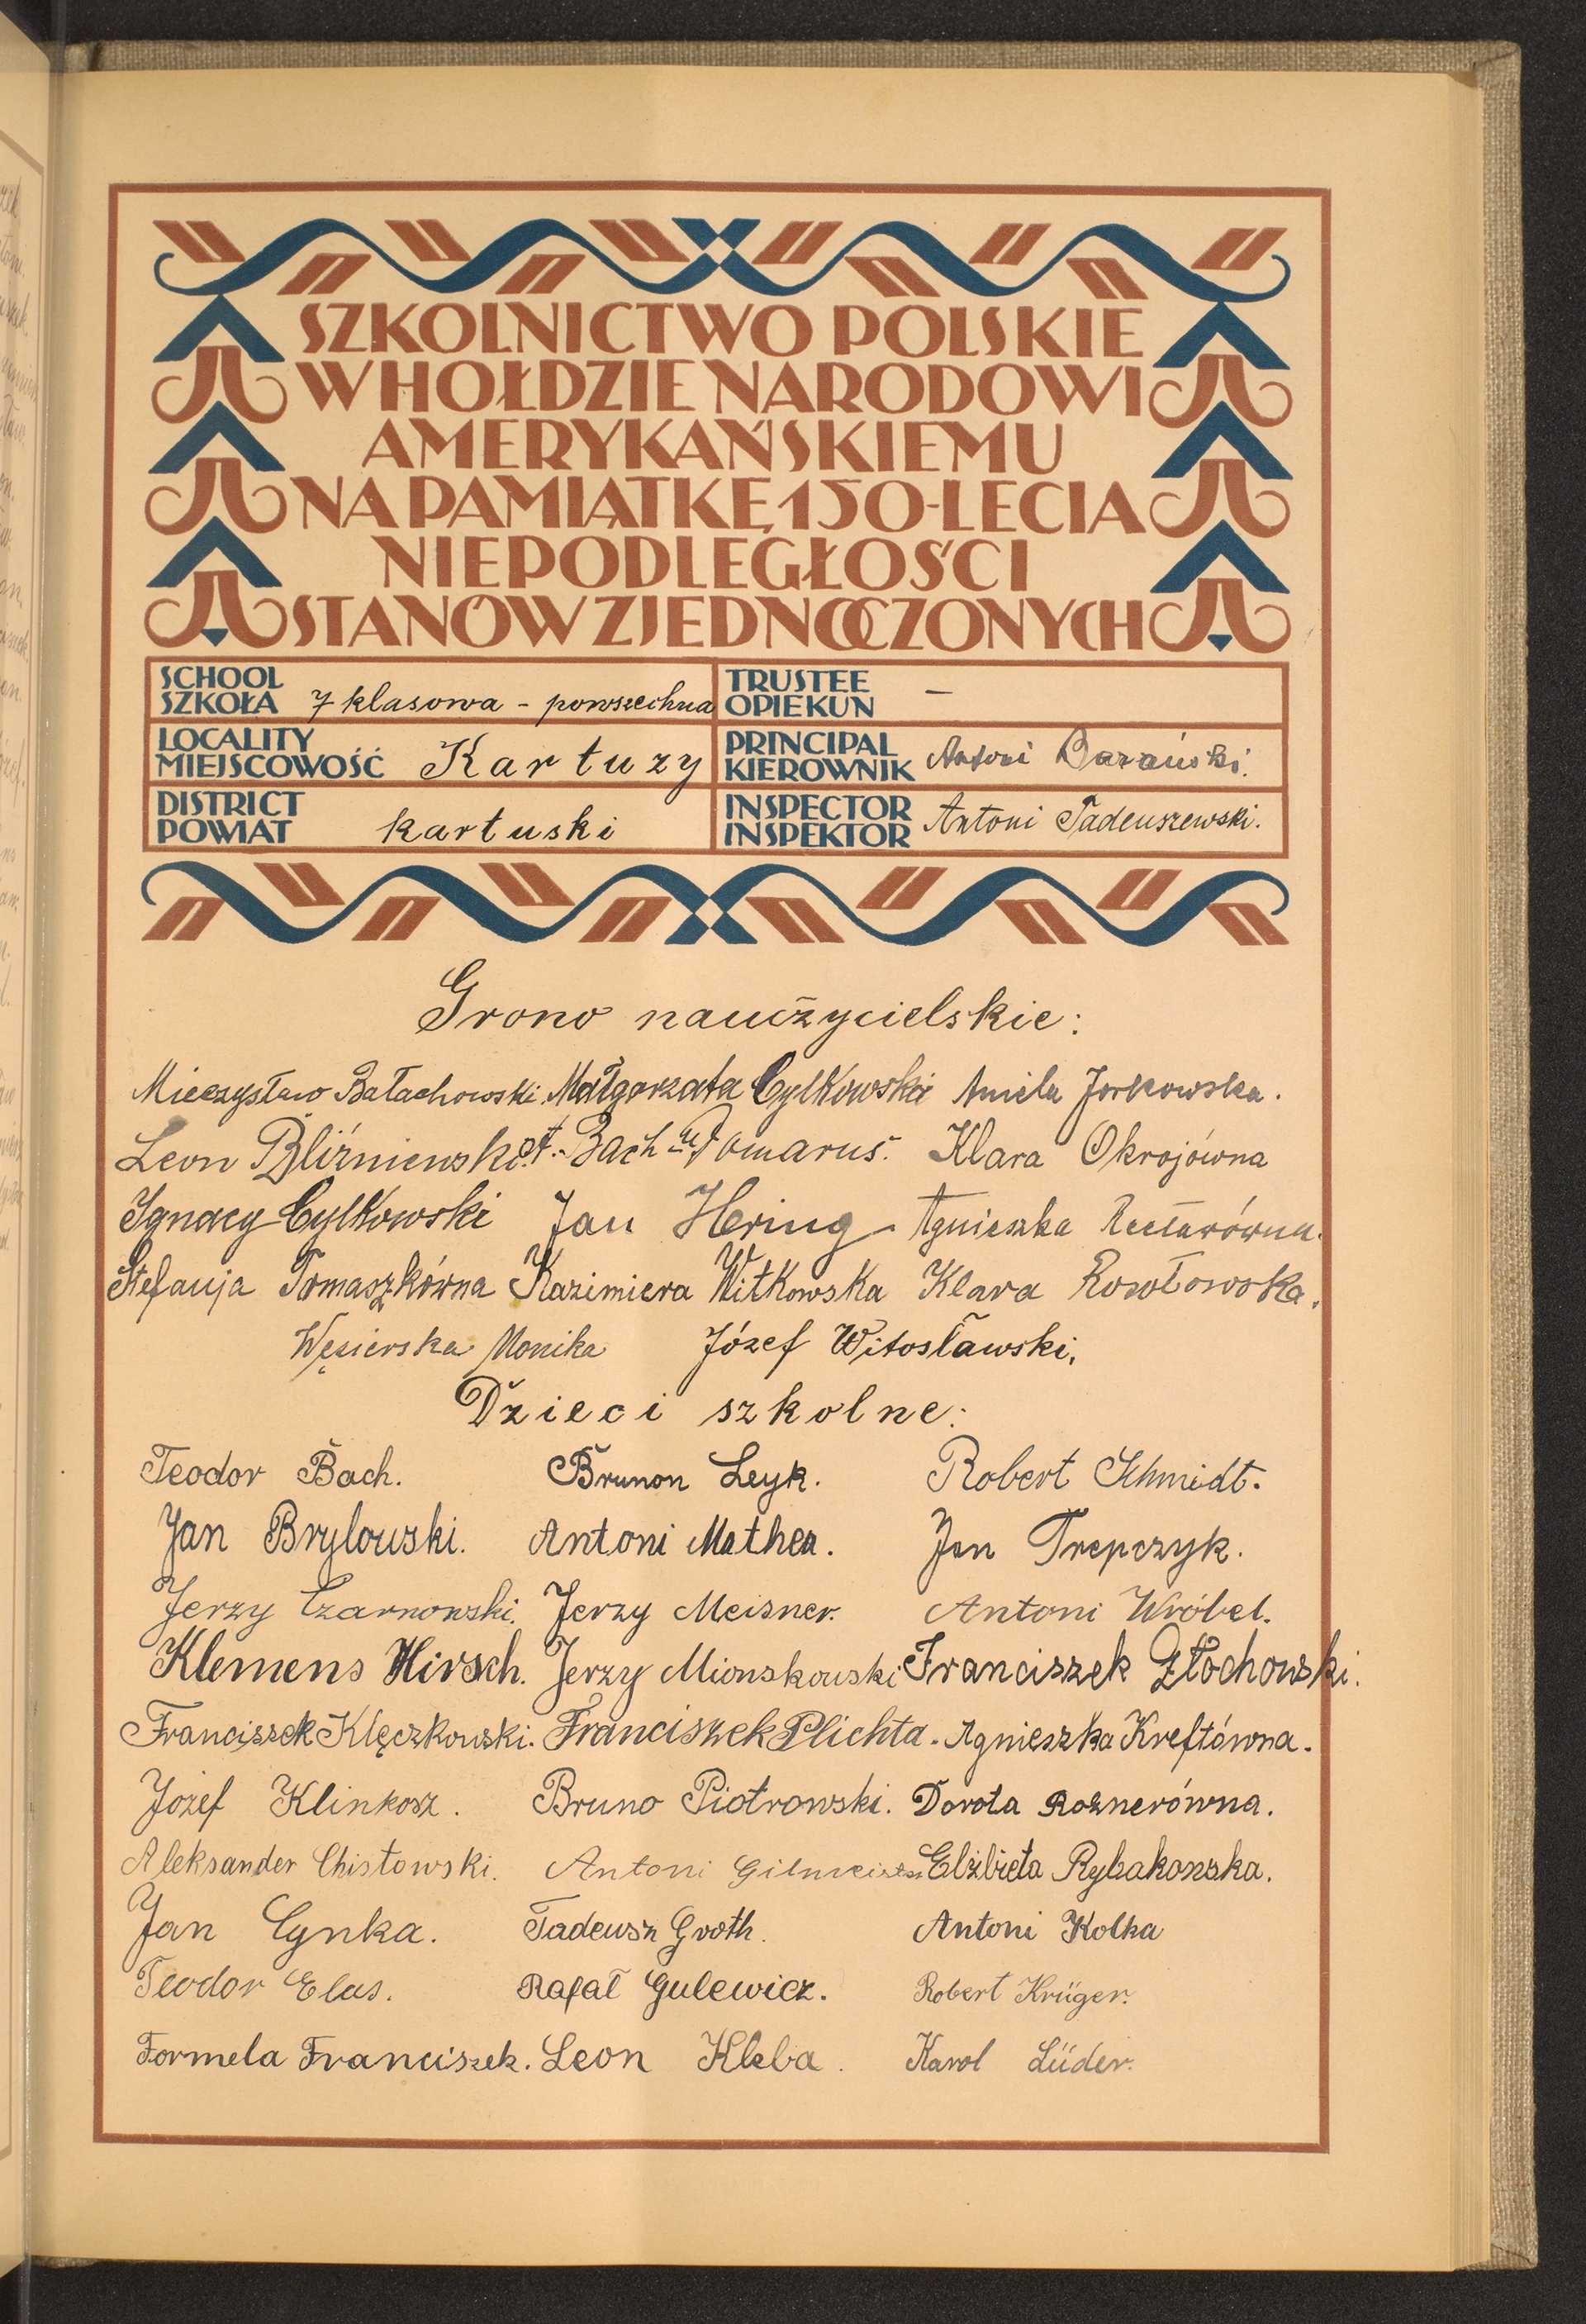 SZKOLNICTWO POLSKIE
W HOŁDZIE NARODOWI
AMERYKAŃSKIEMU
NA PAMIĄTKĘ 150-LECIA
NIEPODLEGŁOŚCI
STANÓW ZJEDNOCZONYCH
SCHOOL
SZKOŁA 7 klasowa - powszechna
TRUSTEE
OPIEKUN —
LOCALITY
MIEJSCOWOŚĆ Kartuzy
PRINCIPAL
KIEROWNIK Antoni Barański.
DISTRICT
POWIAT kartuski
INSPECTOR
INSPEKTOR Antoni Tadeuszewski.
Grono nauczycielskie:
Mieczysław Bałachowski. Małgorzata Cylkowska Aniela Jorkowska.
Leon Bliźniewski. Bach Domarus. Klara Okrojówna
Ignacy Cylkowski Jan Hering Agnieszka
Stefanja Tomaszkówna Kazimiera Witkowska Klara
Węsierska Monika Józef Witosławski.
Dzieci szkolne:
Teodor Bach. Brunon Leyk. Robert Schmidt.
Jan Brylowski. Antoni Mathea. Jan Trepczyk.
Jerzy Czarnowski. Jerzy Meisner. Antoni Wróbel.
Klemens Hirsch. Jerzy Mionskowski Franciszek Złochowski.
Franciszek Klęczkowski. Franciszek Plichta. Agnieszka Kreftówna.
Józef Klinkosz. Bruno Piotrowski. Dorota Roznerówna.
Aleksander Chistowski. Antoni Elżbieta Rybakowska.
Jan Cynka. Tadeusz Groth. Antoni Kolka
Teodor Elas. Rafał Gulewicz. Robert Krüger.
Formela Franciszek. Leon Kleba. Karol Lüder.